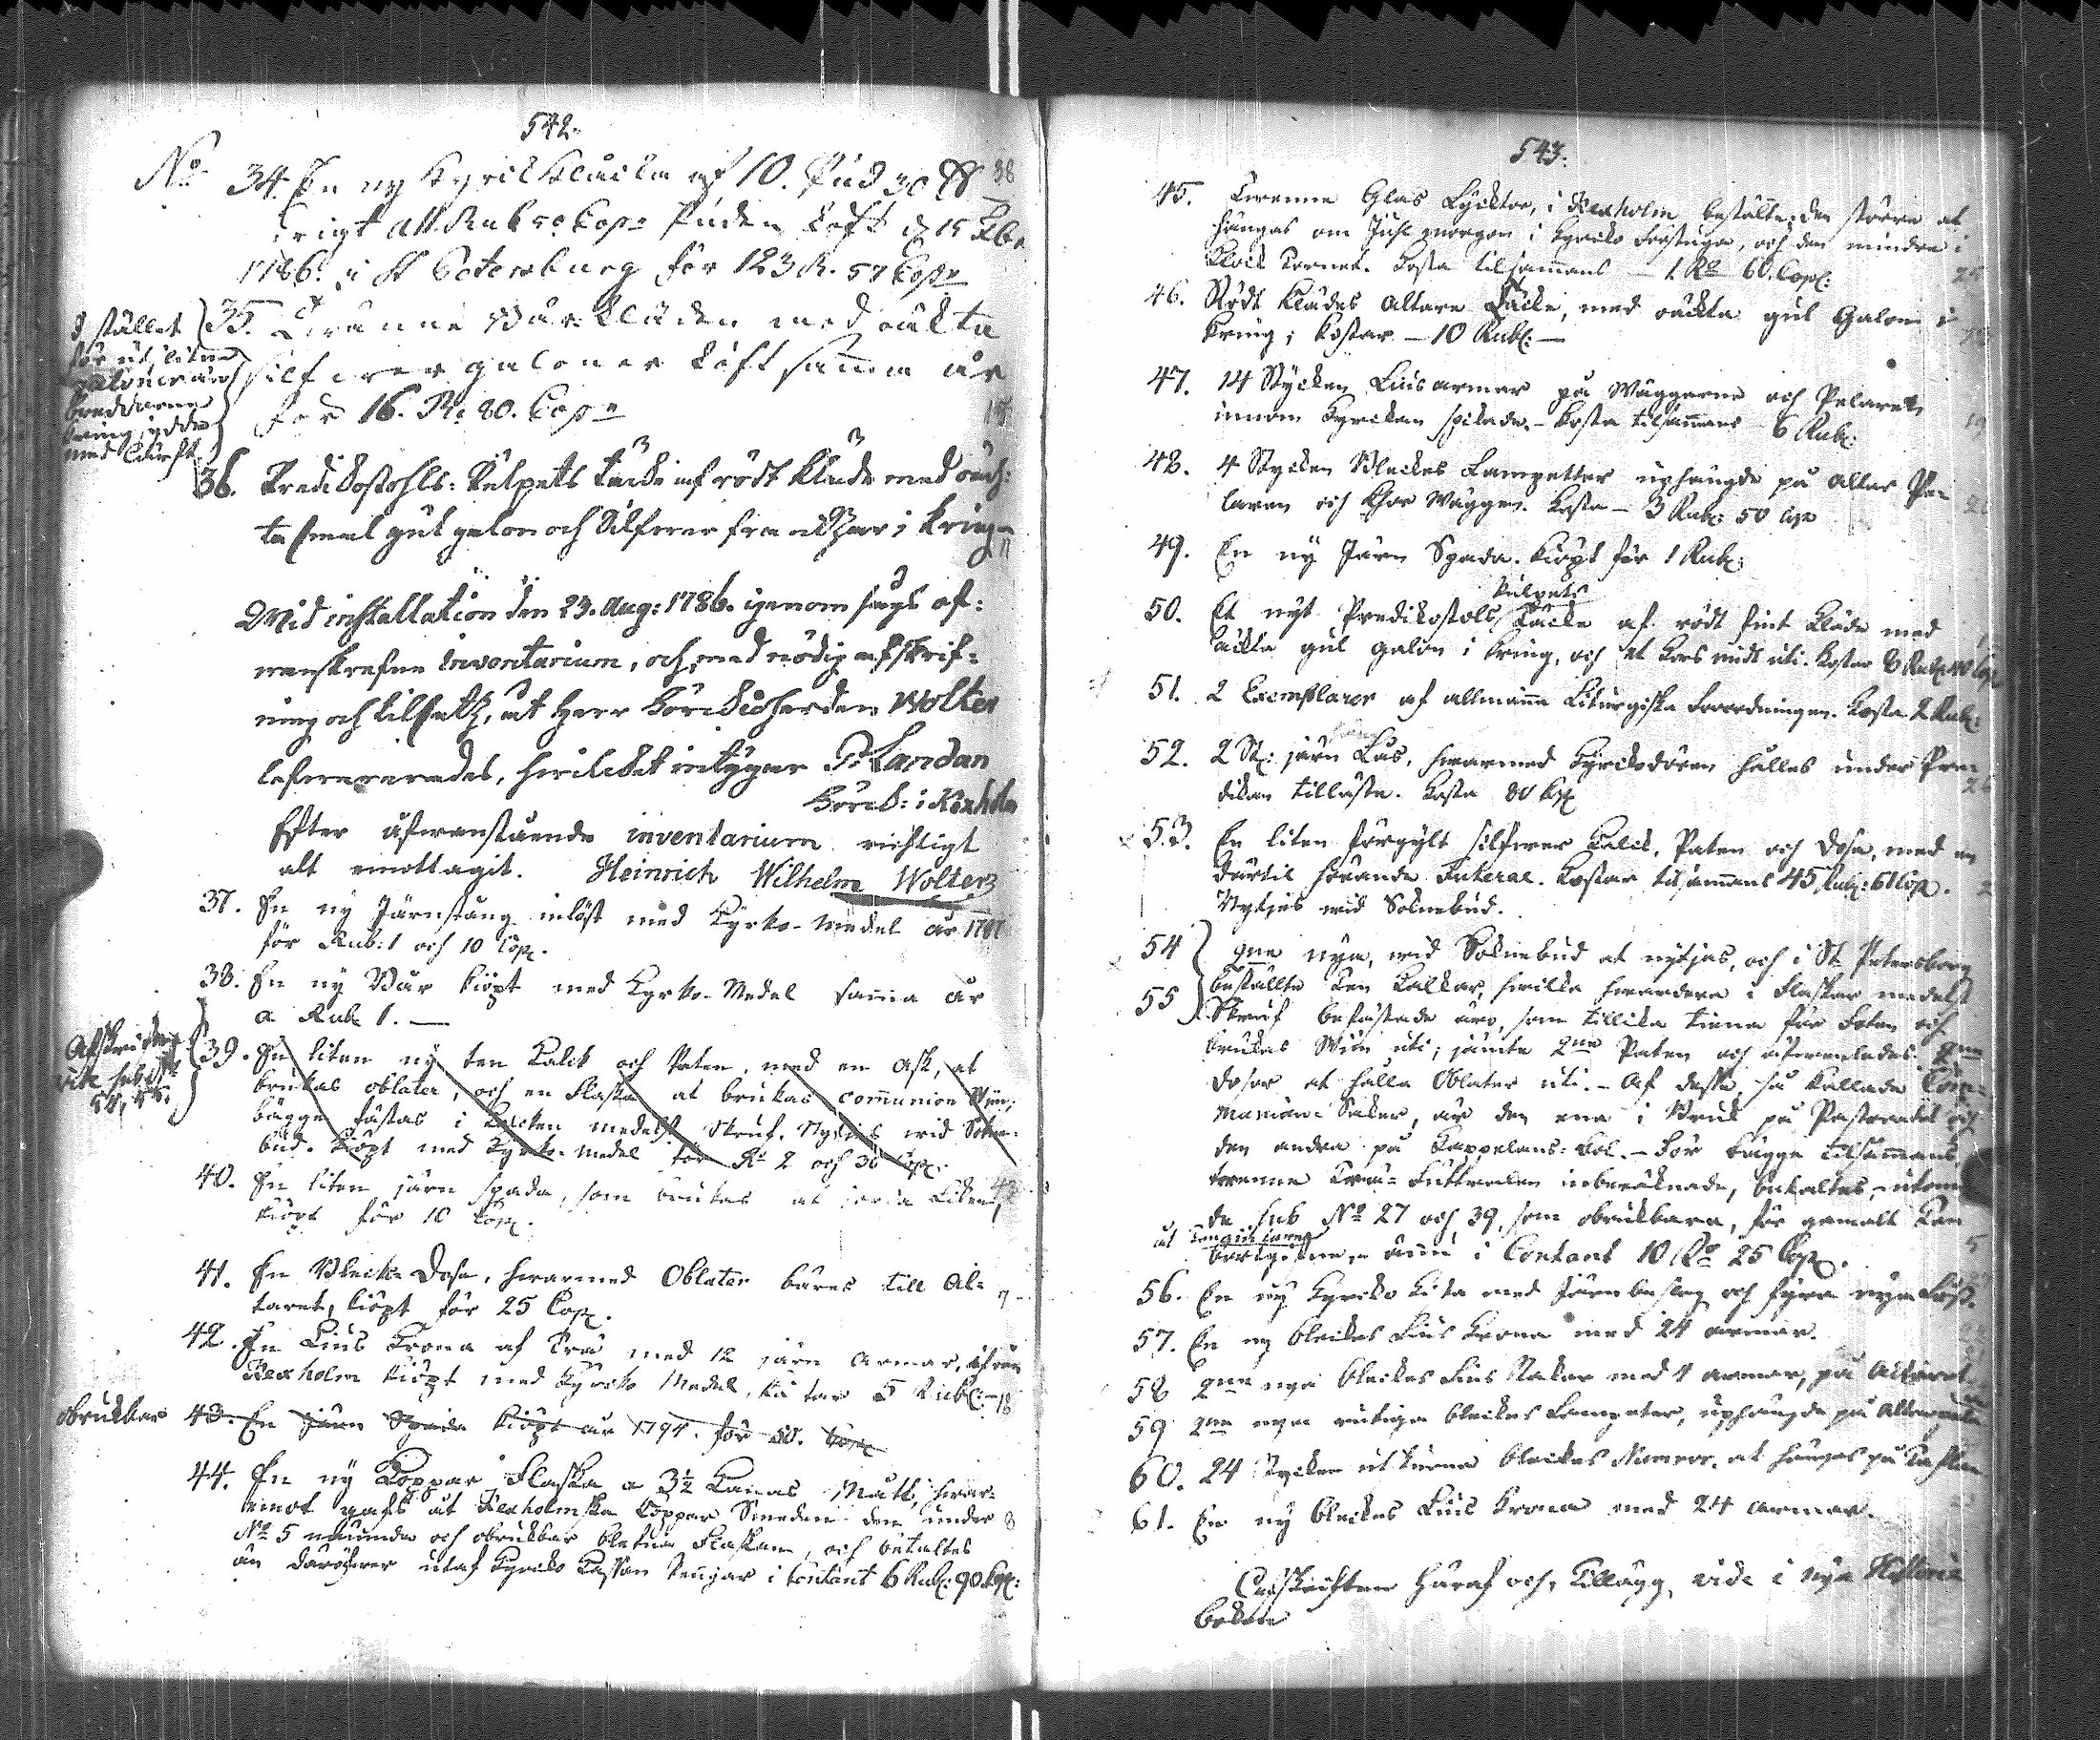 542.
No 34. En ny Kyrckklåcka af 10. Pud 30 ℔
wigt all Rub 50 Cop: Puden köpt d 15 Feb:
1786. i St Petersburg för 123 R. 57 Cop:
35. Tvänne Bår-kläden med äckta
silfwer galoner köpt samma år
för 16. R: 20. Cop:
I stället
för
galoner äro
bredderne
kring sydde
med
36. Predikostohls-Pulpets Täcke af rödt Kläde med äck:
ta smal gul galon och Silfwer frantzar i kring
Wid installation den 23. Aug: 1786. igenom sågs of:
wanskrefne inventarium, och med nödig afskrif:
ning och tilsatz, åt Herr Kÿrckioherden Wolter
lefwererades, hwilcket intygar P: Landan
Kÿrckh: i Kexholm
Efter åfwanstående inventarium richtigt
alt emottagit. Heinrich Wilhelm Wolter
37. En ny Järnstång inlöst med Kyrko-medel år 1787
för Rub: 1 och 10 Cop.
38. En ny Bår kiöpt med Kyrko-Medel samma år
a Rub 1. —
39. En liten ny ten Kalck och Paten, med en Ask, at
brukas oblater, och en Flaska at brukas communion Wijn;
bägge fästas i Kalcken medelst Skruf. Nyttjas wid Sokne-
bud. Kiöpt med Kyrko-medel för R: 2 och 30 Cop.
vide sub No
54, 55.
40. En liten järn spada, som brukas at jorda Liken,
kiöpt för 10 Cop.
41. En Bleck-Dosa, hwarmed Oblater bäres till Al-
taret, kiöpt för 25 Cop.
42. En Lius Krona af Trä med 12 järn Armar, ifrån
Kexholm kiöpt med Kyrcko Medel, kåstar 5 Rubl: —
obrukbar 43. En Järn Spada kiöpt år 1794. för 50. Cop.
44. En ny Koppar Flaska a 3½ Kanas Mått, hwar-
emot gafs åt Kexholmska Coppar Smeden den under
No 5 nämnda och obrukbar blefna Flaskan, och betaltes
än däröfwer utaf Kyrcko Kassan Pengar i Contant 6 Rub: 90 Cop:
543.
45. Twenne Glas Lycktor, i Kexholm bestälte; den större at
hängas om Juhl morgon i Kyrcko Förstugan, och den mindre i
Klock Tornet. Kosta tilsammans — 1 Ro 60. Cop:
46. Rödt Klädes Altare Täcke, med äckta gul Galon i
kring; kostar — 10 Rubl: —
47. 14 Stycken Lius armar på Wäggarne och Pelaren
innom Kyrckan spikade. — Kosta tilsammans 6 Rub:
48. 4 Stycken Bleckes Lampetter uphängde på Altar Pe-
laren och Chor Wäggen. Kosta — 3 Rub: 50 Cop
49. En ny Järn Spada. kiöpt för 1 Rub:
50. Et nyt Predikostols Pulpets Täcke af rödt fint Kläde med
äckta gul galon i kring, och et Kors midt uti. Kostar 8 Rub: 40 Cop
51. 2 Exemplarer af allmänna Liturgiska Förordningen. Kosta 2 Rub:
52. 2 St: järn Lås, hwarmed Kyrckodören hålles under Pre-
dikan tillåste. Kosta 80 Cop
53. En liten förgylt silfwer Kalck, Paten och Dosa, med en
Därtil hörande Futeral. Kostar tilsammans 45 Rub: 61 Cop.
Nyttjas wid Soknebud.
54
55 2ne nya, wid Soknebud at nytjas, och i St Petersborg
beställte ten Kalkar, hwilka hwardera i Flaskar medelst
Skruf befästade äro, som tillika tiena för Foten och
brukas Wijn uti; jämte 2ne Paten och åfwanledes 2ne
dosor at hålla Oblater uti. — Af dessa, så kallade Com-
munion-Saker, är den ena i Bruk på Pastoratet och
den andra på Cappelans-Bol. — För bägge tilsammans,
twenne Trä-Futtralen inberäknade, betaltes, utom
de sub No 27 och 39, som obrukbara, för gamalt Ten
bortgifne, ännu i Contant 10 Ro 25 Cop.
56. En ny Kyrcko Kista med Järn beslag och fyra nya Lås.
57. En ny bleckes Lius Krona med 24 armar.
58 2ne nya bleckes Lius Stakar med 4 armar, på Altaret
59 2ne nya bleckes Lampeter, uphängde på
60. 24 Stycken utskurna bleckes Numror, at hänges på Taflan
61. En ny bleckes Lius Krona med 24 armar.
Afskriften häraf och Tillägg, vide i nya Historie
boken